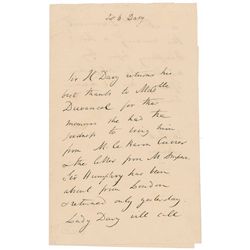 Sir H. Davy
Sir H Davy returns his
best thanks to Mlle
Duvancel for the
memoirs she had the
goodness to bring him
from M. le Baron Cuvier
& the letter from M Dupin.
Sir Humphry has been
absent from London
& returned only yesterday.
Lady Davy will call